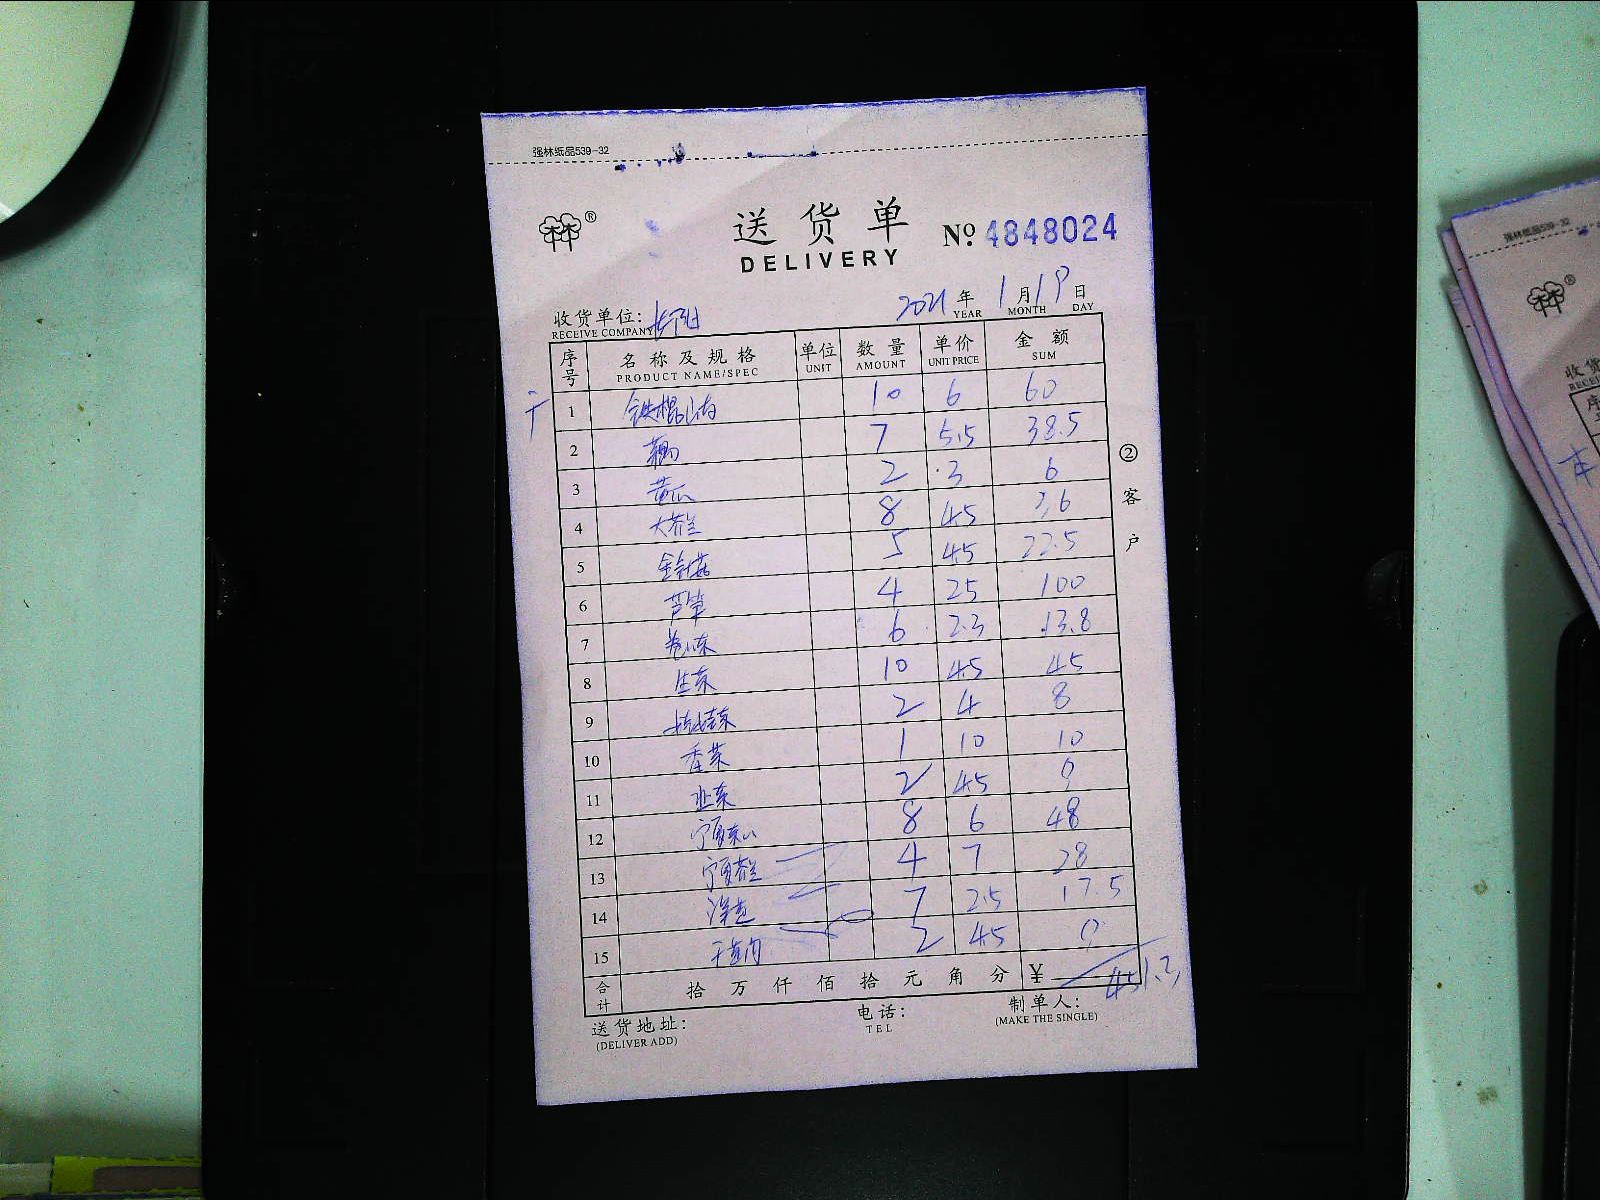 强林纸品539-32
送货单
DELIVERY
№ 4848024
2021 年 1 月 19 日
YEAR MONTH DAY
收货单位:
RECEIVE COMPANY
序号 名称及规格 单位 数量 单价 金额
PRODUCT NAME/SPEC UNIT AMOUNT UNIT PRICE SUM
1 铁棍山药 10 6 60
2 7 5.5 38.5
3 黄瓜 2 3 6
4 大芥兰 8 4.5 36
5 金针菇 5 4.5 22.5
6 芦笋 4 25 100
7 卷心菜 6 2.3 13.8
8 生菜 10 4.5 45
9 2 4 8
10 香菜 1 10 10
11 2 4.5 9
12 宁夏菜心 8 6 48
13 宁夏芥兰 4 7 28
14 洋葱 7 2.5 17.5
15 2 4.5 9
合计 拾 万 仟 佰 拾 元 角 分 ¥
②客户
送货地址:
(DELIVER ADD)
电话:
TEL
制单人:
(MAKE THE SINGLE)
强林纸品539-32